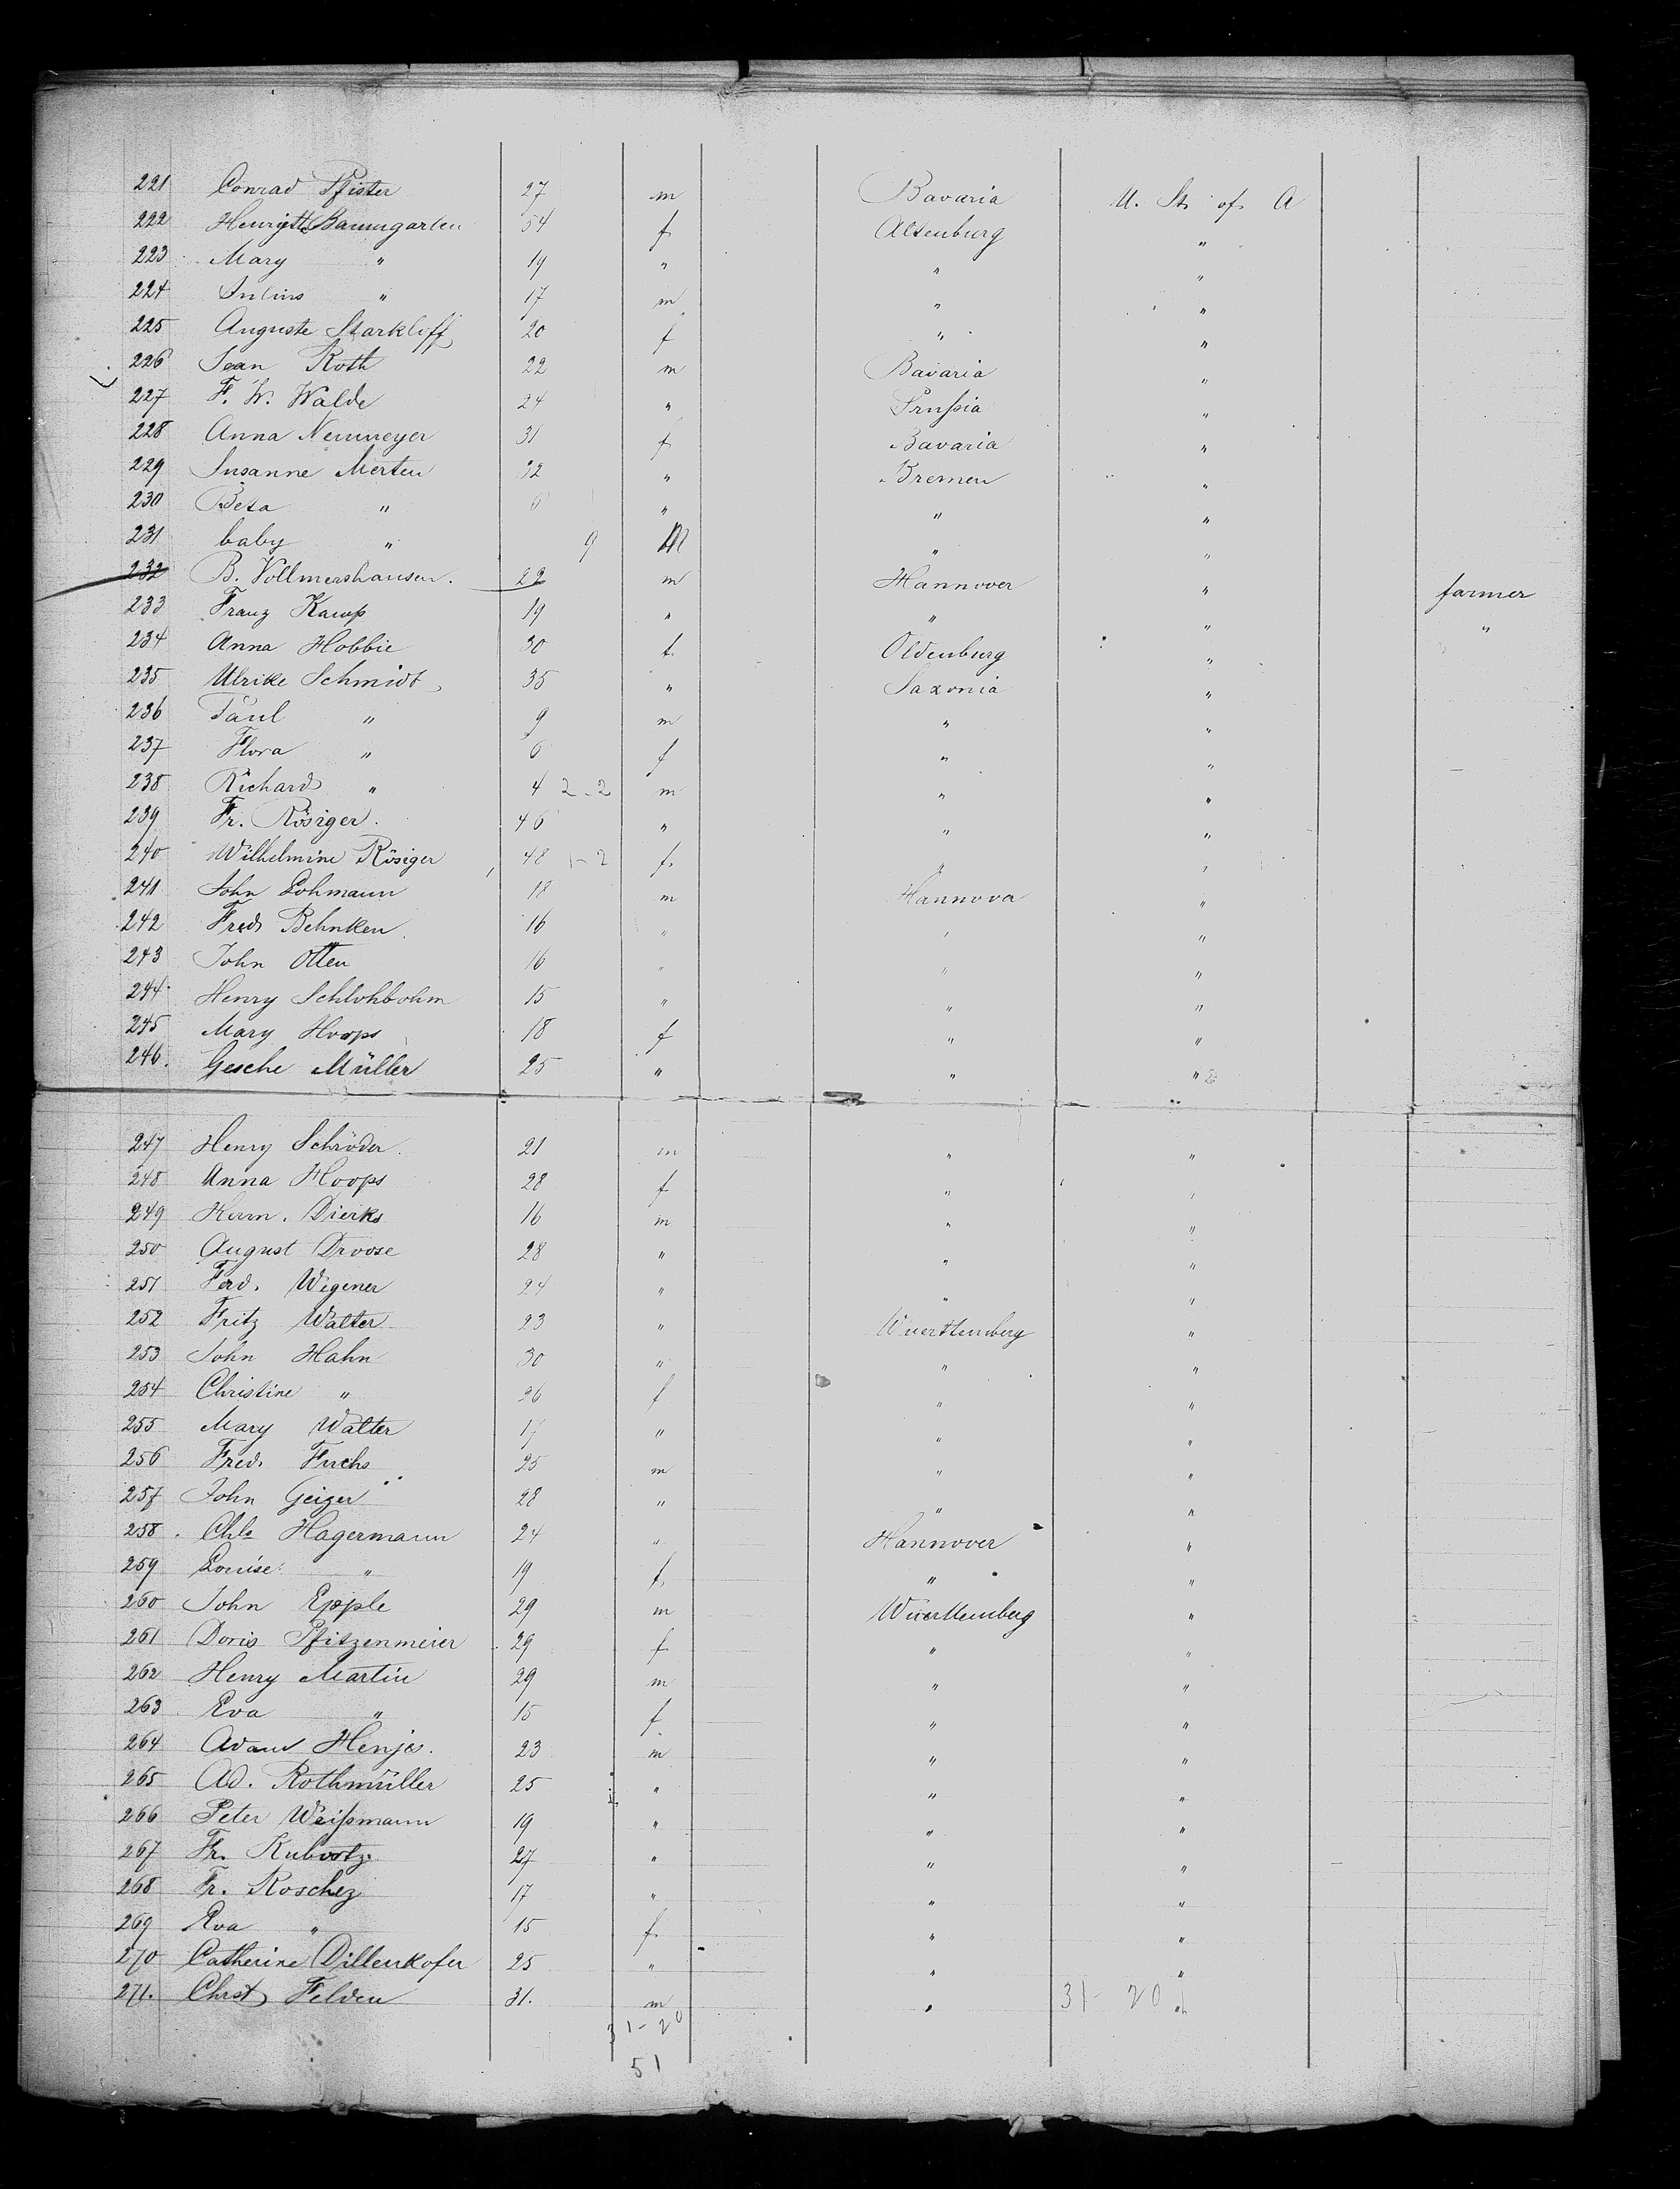 221 Conrad Pfister 27 m Bavaria U. St. of A
222 Henriette Baumgarten 54 f Altenburg "
223 Mary " 19 " " "
224 Julius " 17 m " "
225 Auguste Starkloff 20 f " "
226 Jean Roth 22 m Bavaria "
227 F. W. Walde 24 " Prussia "
228 Anna Neumeyer 31 f Bavaria "
229 Susanne Merten 32 " Bremen "
230 Beta " 6 " " "
231 baby " 9 M " "
232 B. Vollmershausen. 22 m Hannover " farmer
233 Franz Kamp 19 " " " "
234 Anna Hobbie 30 f. Oldenburg "
235 Ulrike Schmidt 35 " Saxonia "
236 Paul " 9 m " "
237 Flora " 6 f " "
238 Richard " 4 2-2 m " "
239 Fr. Rösiger. 46 " " "
240 Wilhelmine Rösiger 48 1-2 f. " "
241 John Lohmann 18 m Hannover "
242 Fred. Behnken 16 " " "
243 John Otten 16 " " "
244 Henry Schlohbohm 15 " " "
245 Mary Hoops 18 f " "
246. Gesche Müller 25 " " "
247 Henry Schröder. 21 m " "
248 Anna Hoops 28 f " "
249 Herm. Dierks 16 m " "
250 August Droose 28 " " "
251 Ferd. Wegener 24 " " "
252 Fritz Walter 23 " Wuerttemberg "
253 John Hahn 30 " " "
254 Christine " 26 f " "
255 Mary Walter 17 " " "
256 Fred. Fuchs 25 m " "
257 John Geiger 28 " " "
258. Chls Hagermann 24 " Hannover "
259 Louise " 19 f. " "
260 John Epple 29 m Wuerttemberg "
261 Doris Pfitzenmeier 29 f " "
262 Henry Martin 29 m " "
263 Eva " 15 f. " "
264 Adam Henjes. 23 m " "
265 Ad. Rothmüller 25 " " "
266 Peter Weissmann 19 " " "
267 Fr. Kubootz 27 " " "
268 Fr. Roschez 17 " " "
269 Eva " 15 f. " "
270 Catherine Dillenkofer 25 " " "
271. Chrst Felden 31. m " 31-20 "
31-20
51